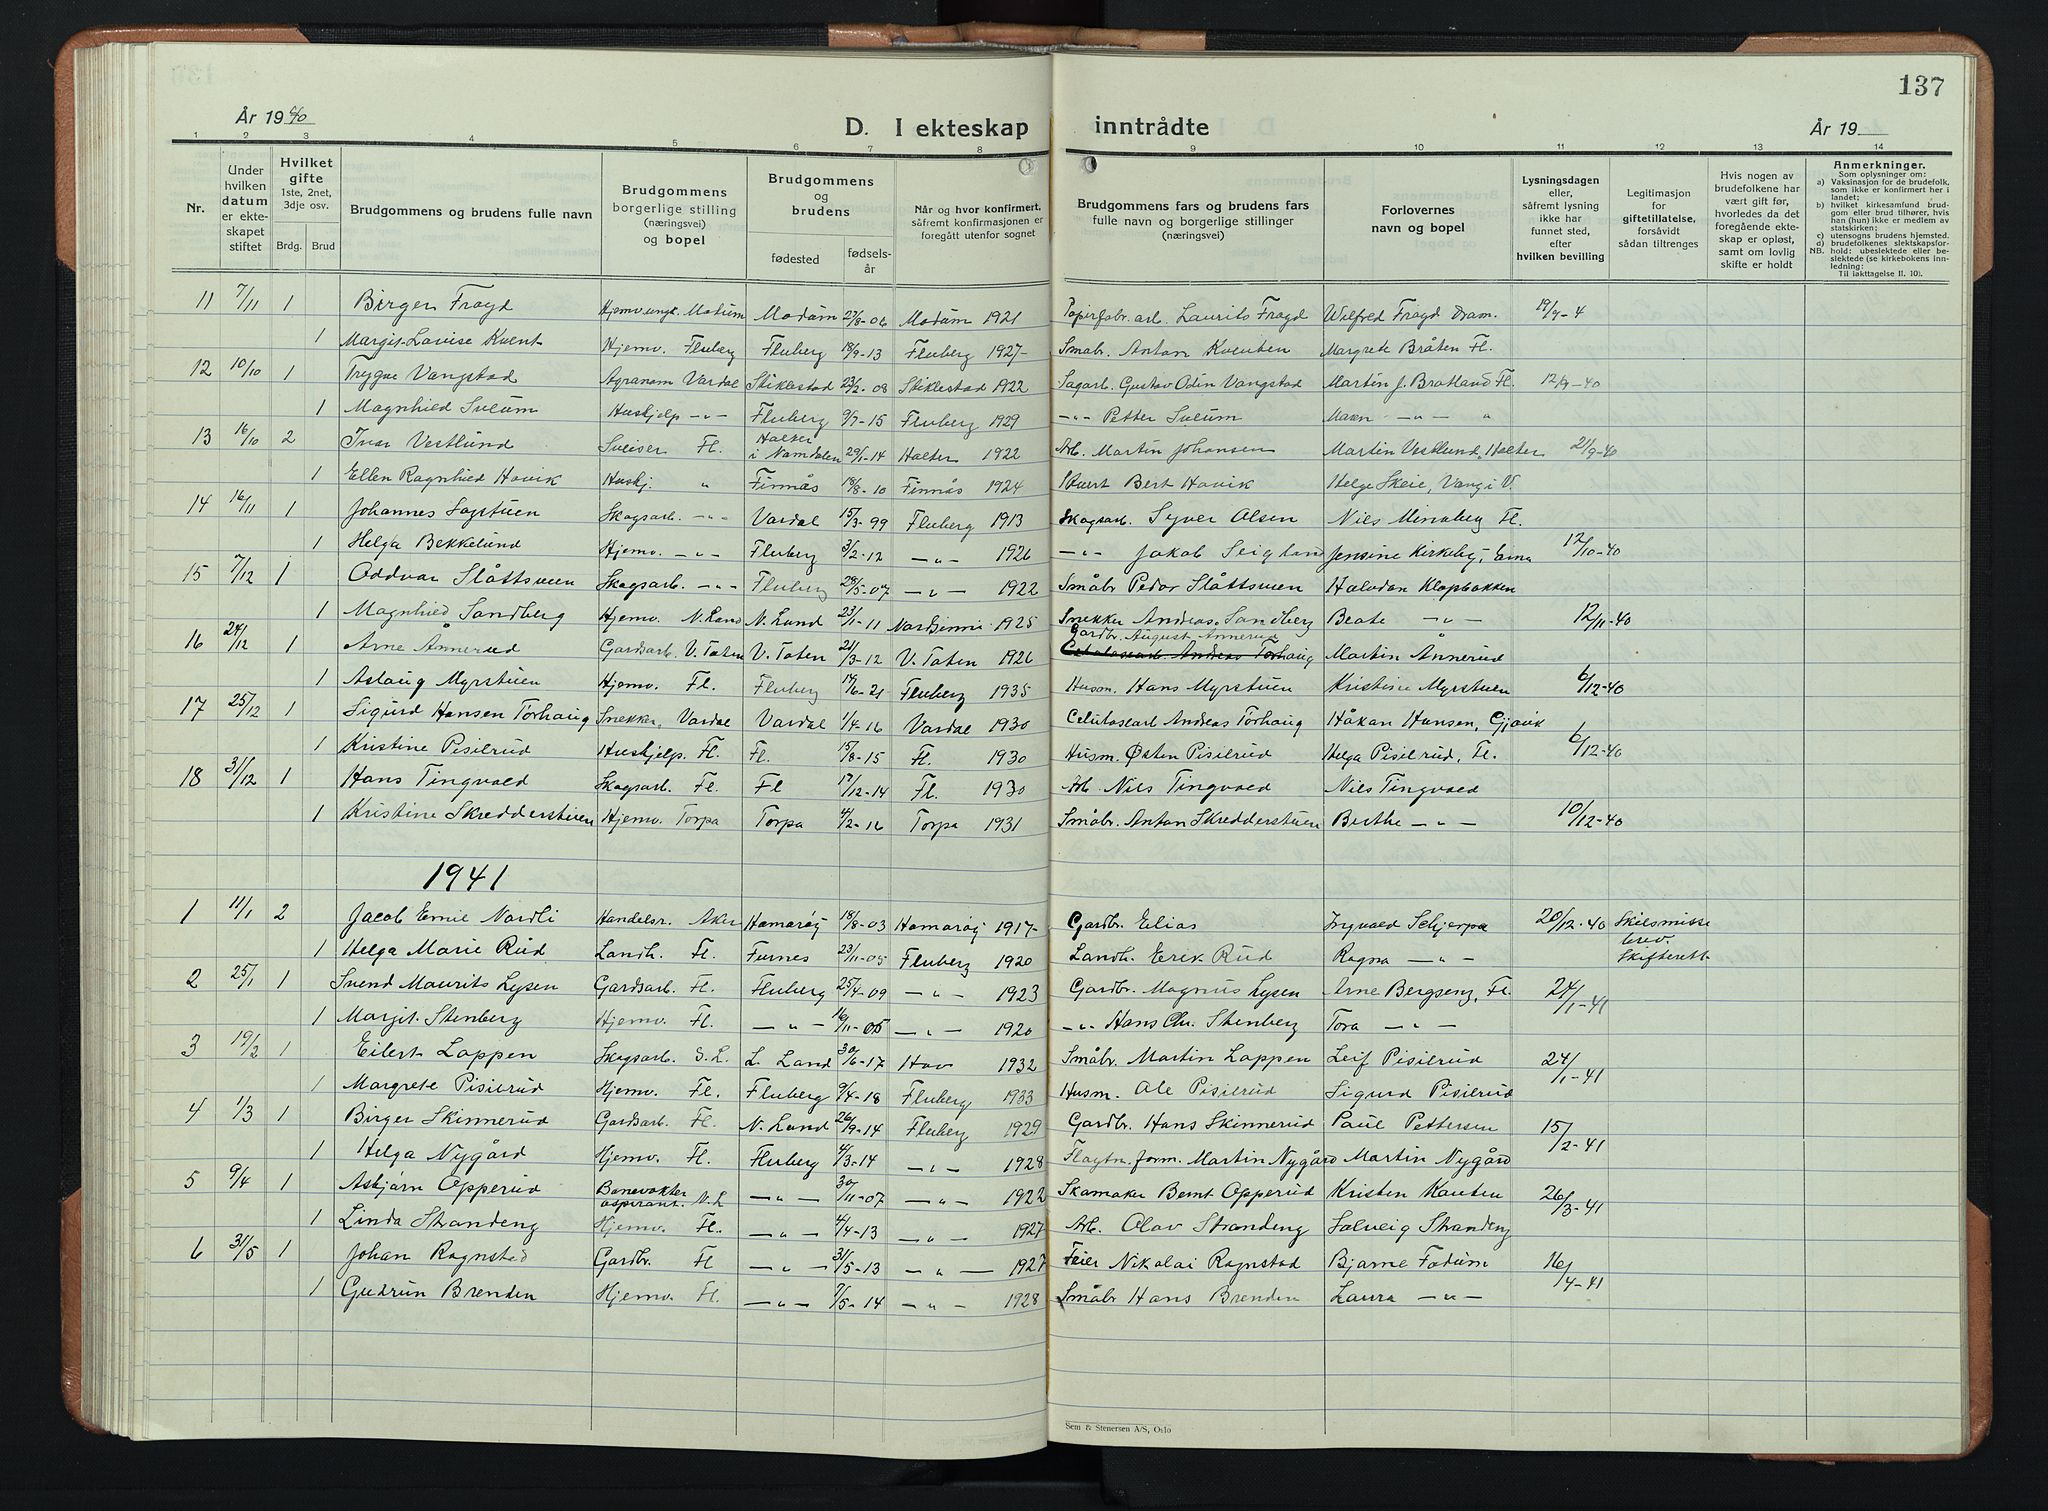 137
År 1940
D. I ekteskap inntrådte
År 19
1 2 3 4 5 6 7 8 9 10 11 12 13 14
Nr.
Under hvilken datum er ekteskapet stiftet
Hvilket gifte 1ste, 2net, 3dje osv.
Brdg. Brud
Brudgommens og brudens fulle navn
Brudgommens borgerlige stilling (næringsvei) og bopel
Brudgommens og brudens
fødested
fødselsår
Når og hvor konfirmert, såfremt konfirmasjonen er foregått utenfor sognet
Brudgommens fars og brudens fars fulle navn og borgerlige stillinger (næringsvei)
Forlovernes navn og bopel
Lysningsdagen eller, såfremt lysning ikke har funnet sted, efter hvilken bevilling
Legitimasjon for giftetillatelse, forsåvidt sådan tiltrenges
Hvis nogen av brudefolkene har vært gift før, hvorledes da det foregående ekteskap er opløst, samt om lovlig skifte er holdt
Anmerkninger.
Som oplysninger om:
a) Vaksinasjon for de brudefolk, som ikke er konfirmert her i landet;
b) hvilket kirkesamfund brudgom eller brud tilhører, hvis han (hun) ikke er medlem av statskirken;
c) utensogns brudens hjemsted.
d) brudefolkenes slektskapsforhold: ubeslektede eller beslektede (se kirkebokens innledning: Til iakttagelse II. 10).
NB.
11 7/11 1 Birger Frogd Hjemvungk. Modum Modum 27/8-06 Modum 1921 Papirfabr. arb. Laurits Frogd Wilfred Frogd Dram. 19/9-4
1 Margit Lovise Kvent Hjemv. Fluberg Fluberg 18/9-13 Fluberg 1927 Småbr. Anton Kventen Margrete Bråten Fl.
12 10/10 1 Trygve Vangstad Agronom Vardal Stiklestad 23/2-08 Stiklestad 1922 Sagarb. Gustav Odin Vangstad Martin J. Bratland Fl. 12/9-40
1 Magnhild Sveum Hushjelp -"- Fluberg 9/7-15 Fluberg 1929 -"- Petter Sveum Maren -"- "
13 16/10 2 Ivar Vestlund Sveiser Fl. Halter i Namdalen 29/1-14 Halter 1922 Arb. Martin Johansen Martin Vestlund, Halter 21/9-40
1 Ellen Ragnhild Hovik Huskj. " Finnås 18/8-10 Finnås 1924 Bert Hovik Helge Skeie, Vang i V.
14 16/11 1 Johannes Sagstuen Skogsarb. -"- Vardal 15/3-99 Fluberg 1913 Skogsarb. Syver Olsen Nils Minaberg Fl.
1 Helga Bekkelund Hjemv. -"- Fluberg 3/2-12 -"- 1926 -"- Jakob Seigland Jensine Kirkeby, Eina 12/10-40
15 7/12 1 Oddvar Slåttsveen Skogsarb. -"- Fluberg 28/5-07 -"- 1922 Småbr. Peder Slåttsveen Halvdan Klopbakken
1 Magnhild Sandberg Hjemv. N. Land N. Land 23/1-11 Nordsinni 1925 Snekker Andreas Sandberg Beate -"- 12/11-40
16 24/12 1 Arne Ånnerud Gardsarb. V. Toten V. Toten 21/3-12 V. Toten 1926 Gardbr. August Annerud Celulosearb. Andreas Torhaug Martin Ånnerud
1 Aslaug Myrstuen Hjemv. Fl. Fluberg 14/6-21 Fluberg 1935 Husm. Hans Myrstuen Kristine Myrstuen 6/12-40
17 25/12 1 Sigurd Hansen Torhaug Snekker, Vardal Vardal 1/4-16 Vardal 1930 Celulosearb. Andreas Torhaug Håkon Hansen, Gjøvik
1 Kristine Pisilrud Huskjelp. Fl. Fl. 15/8-15 Fl. 1930 Husm. Østen Pisilrud Helga Pisilrud, Fl. 6/12-40
18 31/12 1 Hans Tingvold Skogsarb. Fl. Fl 17/12-14 Fl. 1930 Arb. Nils Tingvold Nils Tingvold
1 Kristine Skredderstuen Hjemv. Torpa Torpa 4/2-16 Torpa 1931 Småbr. Anton Skredderstuen Berthe -"- 10/12-40
1941
1 11/1 2 Jacob Emil Nordli Handelsr. Aker Hamarøy 18/8-03 Hamarøy 1917 Gardbr. Elias Ingvald Schjerpa 20/12-40 Skilsmisse brev. Skifterett
1 Helga Marie Rud Landh. Fl. Furnes 23/11-05 Fluberg 1920 Landh. Erik Rud Ragna -"-
2 25/1 1 Svend Maurits Lysen Gardsarb. Fl. Fluberg 25/4-09 -"- 1923 Gardbr. Magnus Lysen Arne Bergseng, Fl. 24/1-41
1 Margit Stenberg Hjemv. Fl. -"- 16/11-05 -"- 1920 -"- Hans Chr. Stenberg Tora -"-
3 19/2 1 Eilert Loppen Skogsarb. S. L. L. Land 30/6-17 Hov 1932 Småbr. Martin Loppen Leif Pisilrud 24/1-41
1 Margrete Pisilrud Hjemv. Fl. Fluberg 9/4-18 Fluberg 1933 Husm. Ole Pisilrud Sigurd Pisilrud
4 1/3 1 Birger Skinnerud Gardsarb. Fl. N. Land 26/9-14 Fluberg 1929 Gardbr. Hans Skinnerud Paul Pettersen 15/2-41
1 Helga Nygård Hjemv. Fl. Fluberg 4/3-14 -"- 1928 Fløytn. form. Martin Nygård Martin Nygård
5 9/4 1 Asbjørn Opperud Banevokter aspirant. N. L -"- 30/11-07 -"- 1922 Skomaker Bernt Opperud Kristen Hauten 26/3-41
1 Linda Strandeng Hjemv. Fl. -"- 4/4-13 -"- 1927 Arb. Olav Strandeng Solveig Strandeng
6 31/5 1 Johan Rognstad Gardbr. Fl -"- 31/5-13 -"- 1927 Feier Nikolai Rognstad Bjarne Fodum 16/4-41
1 Gudrun Brenden Hjemv. Fl. -"- 7/5-14 -"- 1928 Småbr Hans Brenden Laura -"-
Sem & Stenersen A/S, Oslo